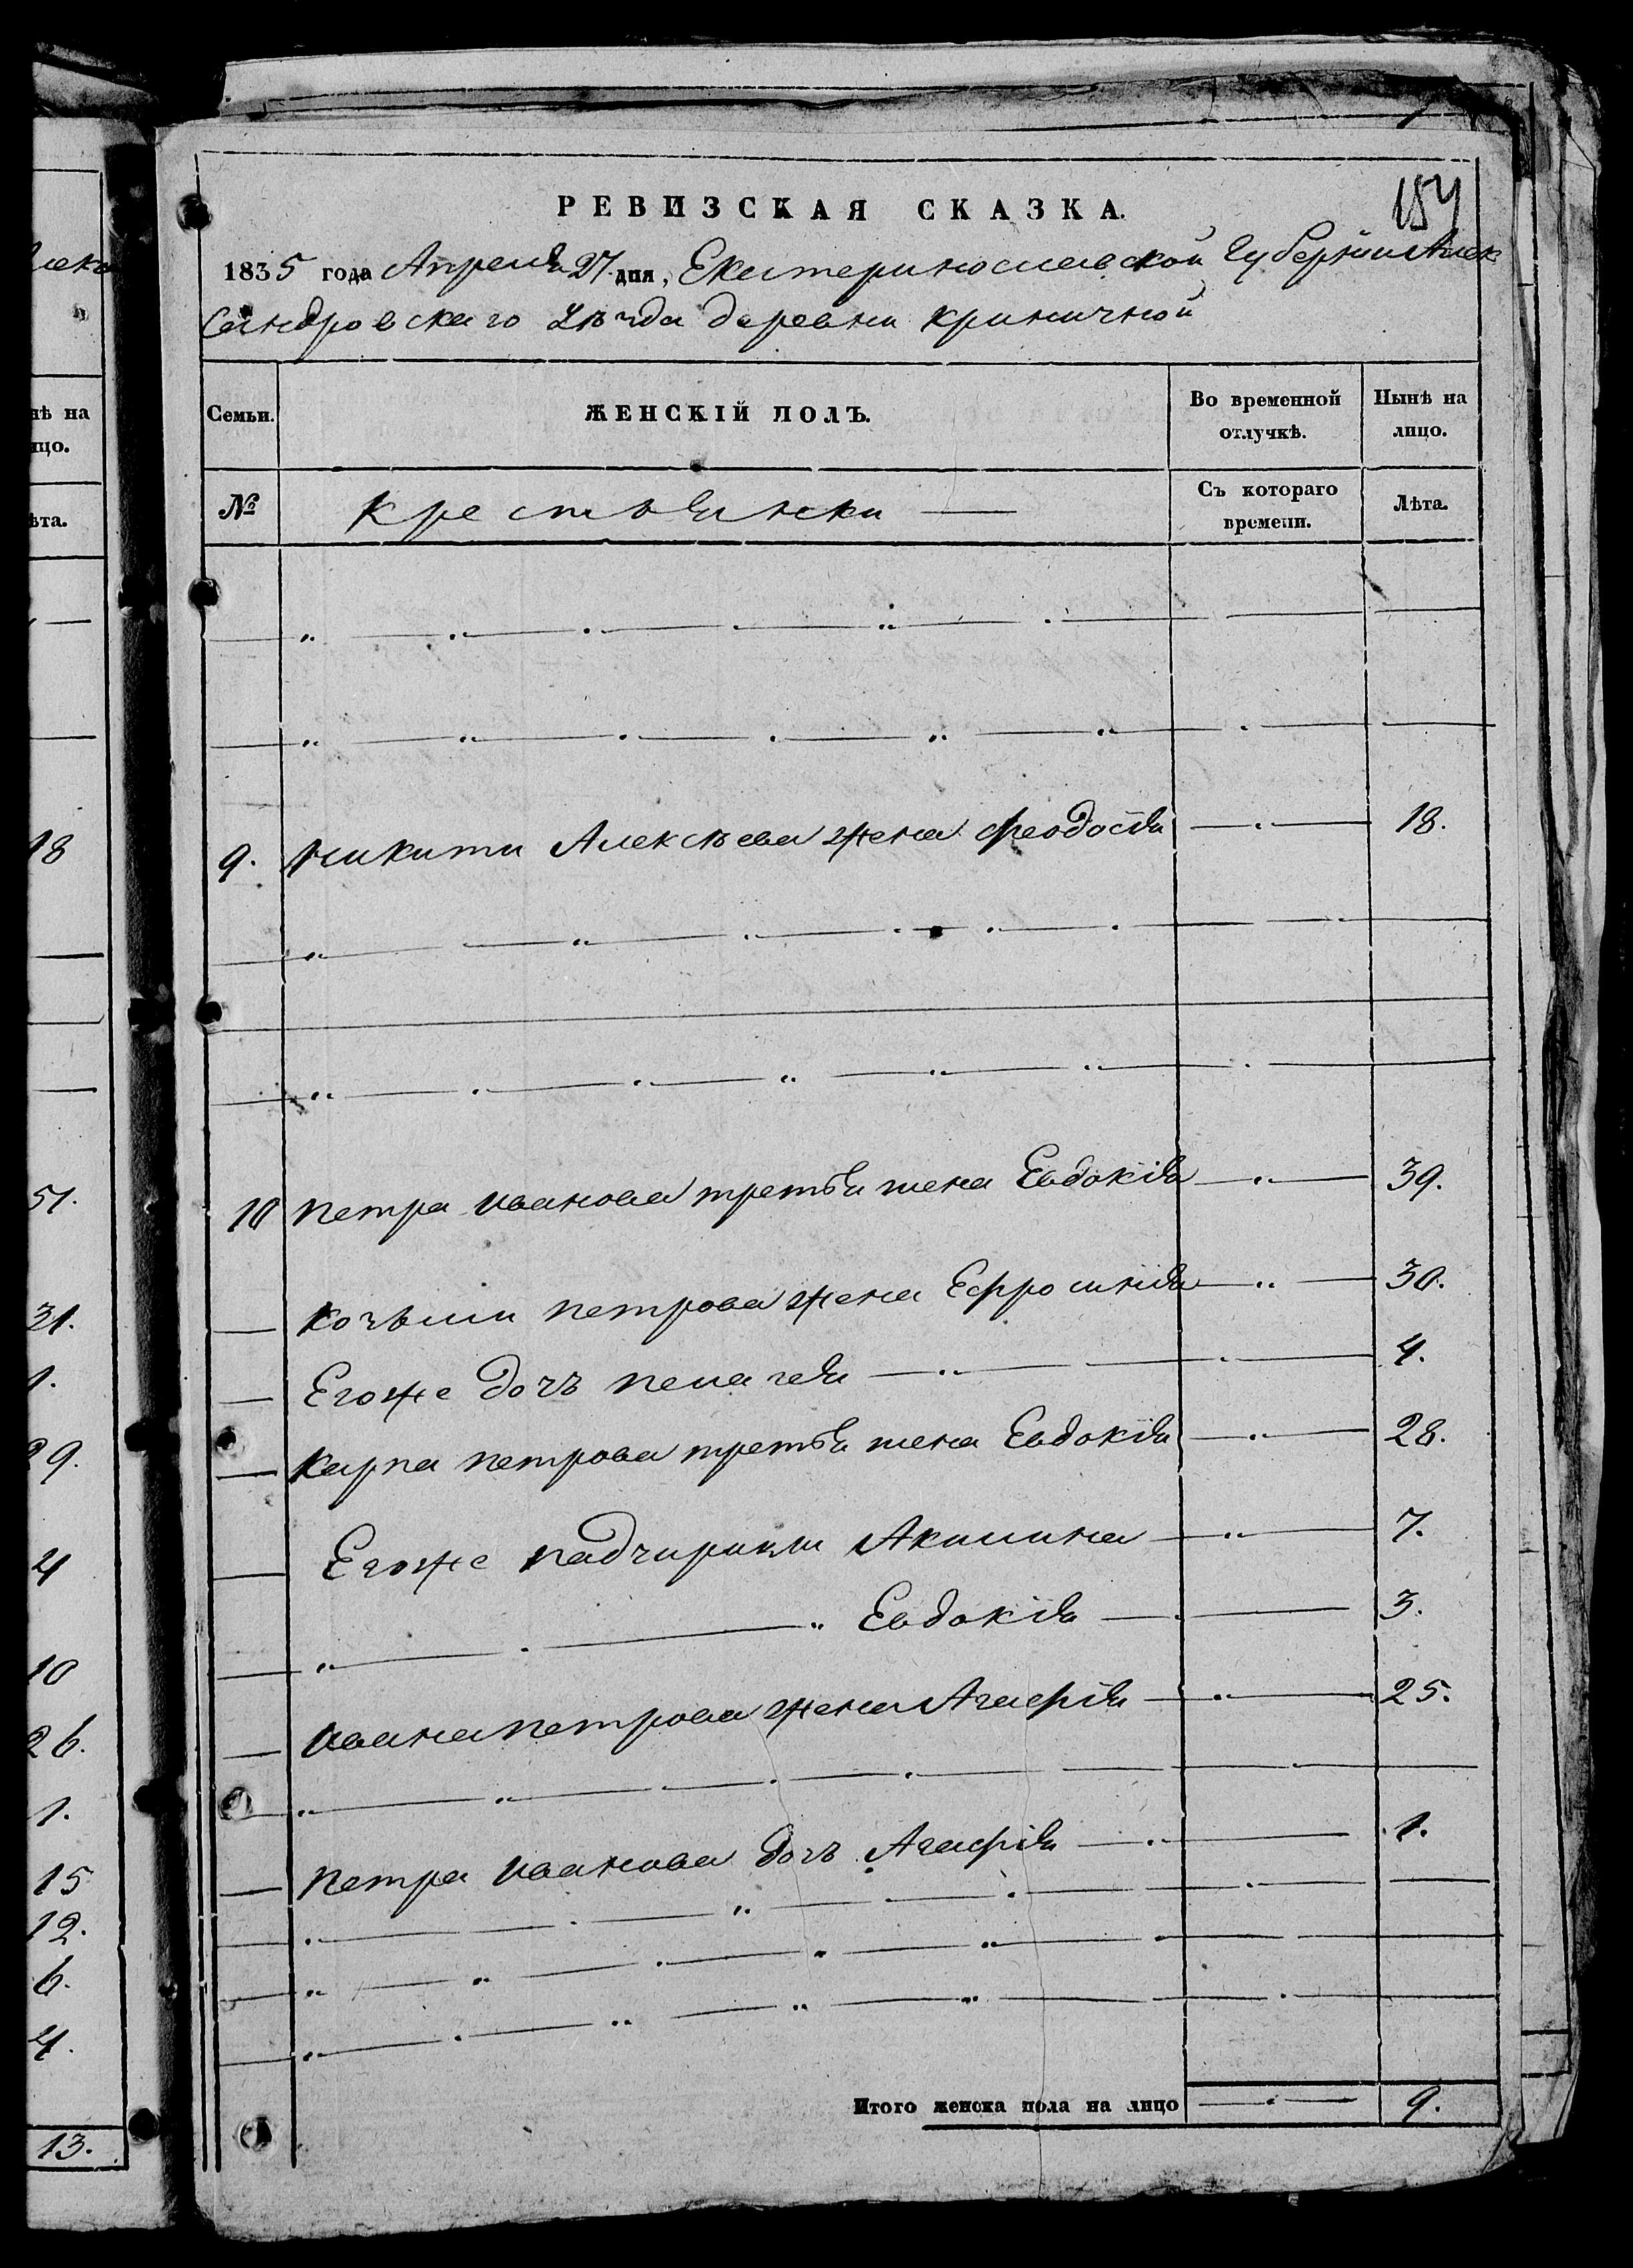 алек
нѣ на
ицо.
ѣта.
18
51.
31.
1.
29.
4
10
26.
1.
15
12.
6.
4.
13.
154
РЕВИЗСКАЯ СКАЗКА.
1835 года Апреля 27 дня, Екатеринославской Губернии Алек
сандровскаго Уѣзда деревни Криничной
Семьи. ЖЕНСКІЙ ПОЛЪ. Во временной отлучкѣ. Нынѣ на лицо.
№ Крестьянки Съ котораго времени. Лѣта.
9. Никити Алексѣева жена Феодосія 18.
10 Петра Иванова третья жена Евдокія 39.
Козьми Петрова жена Ефросинія 30.
Егоже дочъ Пелагея 4.
Карпа Петрова третья жена Евдокія 28.
Егоже падчирицы Акилина 7.
" Евдокія 3.
Ивана Петрова жена Агафія 25.
Петра Иванова дочъ Агафія 1.
Итого женска пола на лицо 9.